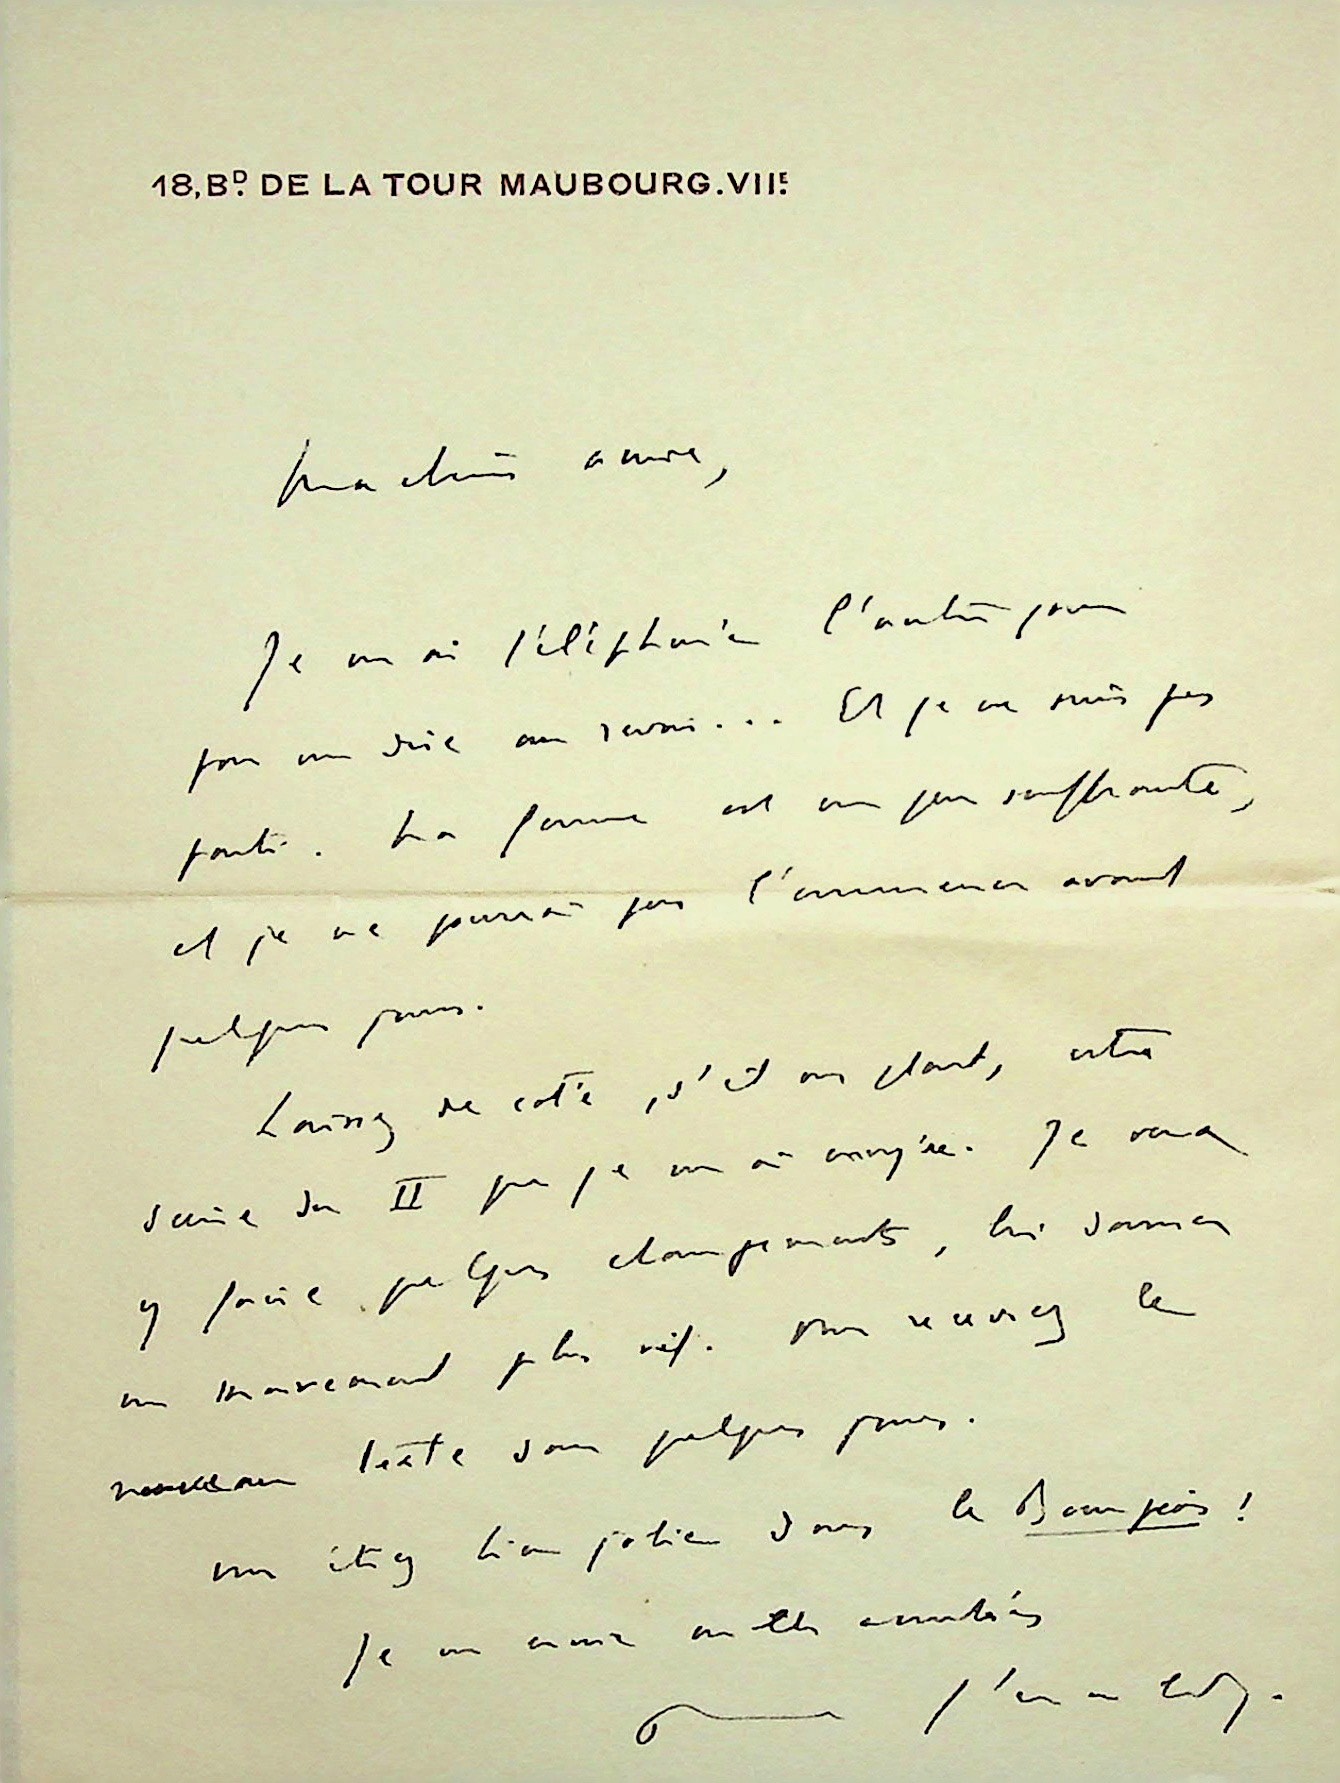 18, BD. DE LA TOUR MAUBOURG. VIIE.
Ma chère amie,
Je vous ai téléphoné l'autre jour
pour vous dire au revoir... Et je ne suis pas
parti. Ma femme est un peu souffrante,
et je ne pourrai pas l'emmener avant
quelques jours.
Laissez de coté, s'il vous plait, votre
scène du II que je vous ai envoyée. Je veux
y faire quelques changements, lui donner
un mouvement plus vif. Vous recevrez le
nouveau texte dans quelques jours.
Vous étiez bien jolie dans le Bourgeois !
Je vous envoie mille amitiés